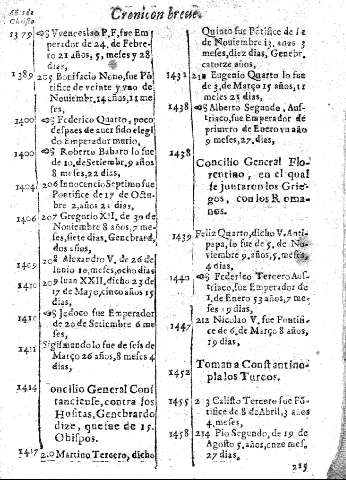 Cronicon breue.
Añ. del
Christo
1379 Vvenceslao P.F, fue Em
perador de 24, de Febre-
ro 21 años, 5, meses y 28
dias,
1389 205 Bonifacio Nono, fue Pó
tifice de veinte y vno de
Nouiembr. 14 años, 11 me
ses.
1400 Federico Quarto, poco
despues de auer sido elegi
do Emperador murio,
1400 Roberto Babaro lo fue
de 10, de Setiembr, 9 años
8 meses, 22 dias,
1404 206 Innocencio Septimo fue
Pontifice de 17 de Octu-
bre 2, años 21 dias,
1406 207 Gregorio XII, de 30 de
Nouiembre 8 años, 7 me-
ses, siete dias, Genebrard,
dos años,
1409 208 Alexandro V, de 26 de
Iunio 10, meses, ocho dias
1410 209 Iuan XXII, dicho 23 de
17 de Mayo, cinco años 15
dias,
1410 Jodoco fue Emperador
de 20 de Setiembre 6 me
ses,
1411 Sigismundo lo fue de seis de
Março 26 años, 8 meses 4
dias,
1414 Concilio General Conf
tanciense, contra los
Husitas, Genebrardo
dize, que fue de 15.
Obispos.
1417 210 Martino Tercero, dicho
Quinto fue Pótifice de 11
de Nouiembre 13, años 3
meses, diez dias, Genebr.
catorze años,
1431 211 Eugenio Quarto lo fue
de 3, de Março 15 años, 11
meses 21 dias,
1438 Alberto Segando, Aus-
triaco, fue Emperador de
primero de Enero vn año
9 meses, 27, dias,
1438
Concilio General Flo-
rentino, en el qual
se juntaron los Grie-
gos, con los Roma-
nos.
1439 Feliz Quarto, dicho V. Anti-
papa, lo fue de 5, de No-
uiembre 9, años, 5, meses,
4 dias,
1440 Federico Tercero Aus-
triaco, fue Emperador de
1, de Enero 53 años, 7 me-
ses 19 dias,
1447 212 Nicolao V, fue Pontifi-
ce de 6, de Março 8 años,
19 dias,
1452 Toman a Constantino-
pla los Turcos.
1455 213 Calisto Tercero fue Pó-
tifice de 8 de Abril, 3 años
4, meses,
1458 214 Pio Segundo, de 19 de
Agosto 5, años, onze mes.
27 dias,
215